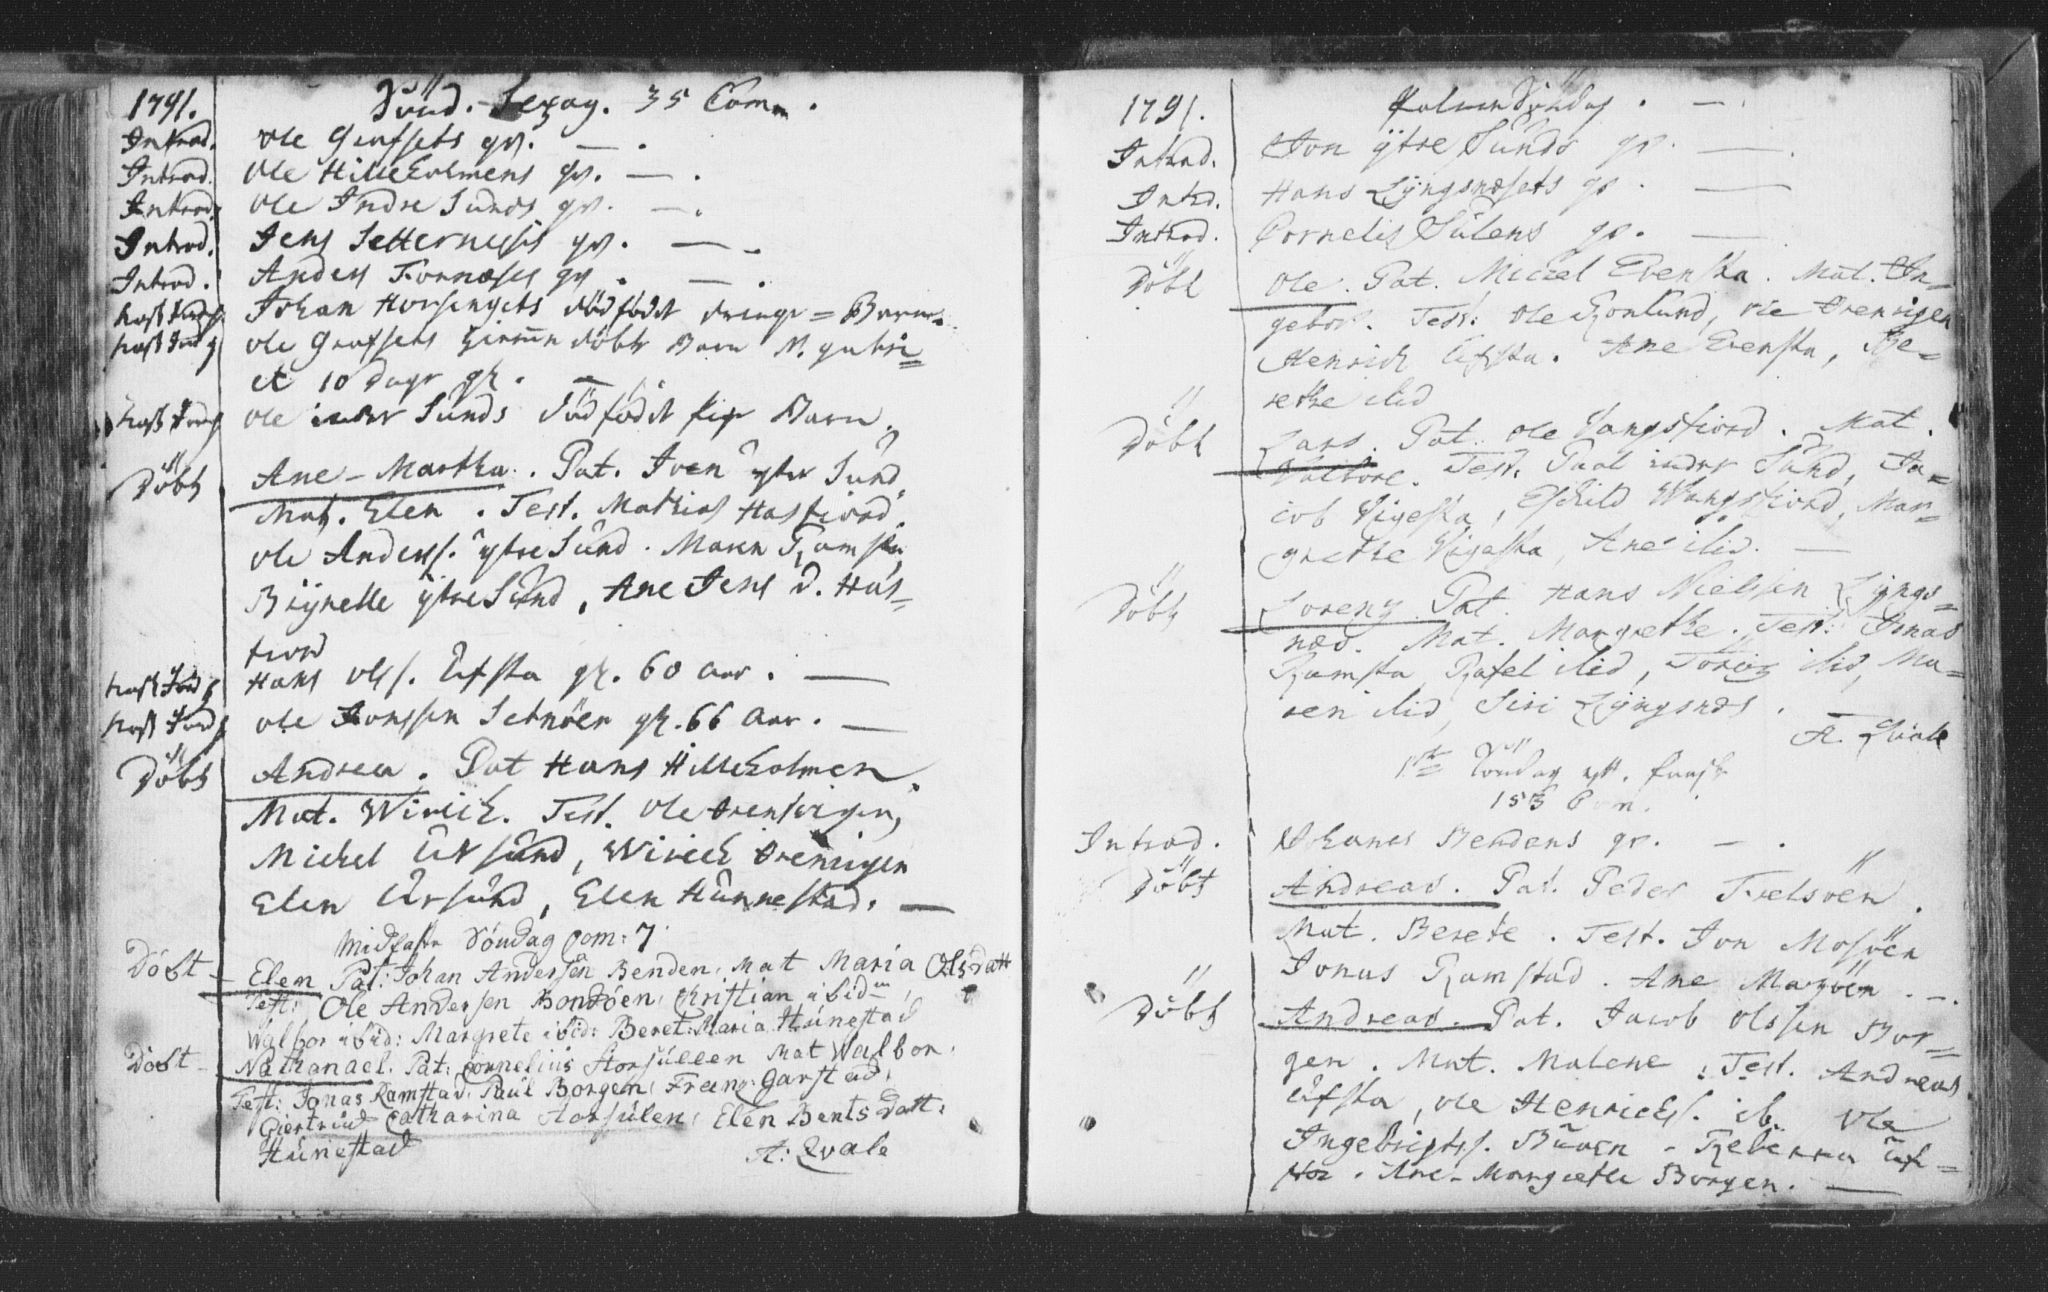 1791. Sünd. Sexag. 35 Com.
Introd. Ole Grafsets qv.
Introd. Ole Hilleholmens qv.
Introd. Ole Indre Sunds qv.
Introd. Jens Setternesses qv.
Introd. Anders Fornæses qv.
Johan Horsengets dödfödt drenge = Barn
Ole Grafsets hiemme döbte Barn N.
et 10 dage gl.
Ole indre Sunds dödfödt pige Barn.
Döbt Ane-Martha. Pat. Iven ytre Sund
Mat. Elen. Test. Mathias Hasfiord
Ole Anders. ytre Sünd. Maren Ramsta
Brynelle ÿtre Sünd, Ane Jens d. Has=
fiord
Hans Ols. Ufsta gl. 60 aar.
Ole Jonssen Setnöen gl. 66 aar.
Döbt Andrea. Pat Hans Hilleholmen.
Mat. Wirick. Test. Ole trenvigen,
Michel Ursünd, Wirick trenvigen
Elen Ürsünd, Elen Hünnestad.
Midfaste Söndag Com: 7
Döbt Elen Pat: Johan Andersen Benden, Mat Maria Olsdatt
Test: Ole Andersen Bondöen, Christian ibidm,
Walbor ibid: Margrete ibid: Beret: Maria Hünestad
Döbt Nathanael. Pat: Cornelius Storsüleen Mat Walbor.
Test: Jonas Ramstad, Paül Borgen, Garstad,
Giertrud Catharina Storsülen, Elen Bents Datt:
Hünestad
A: Qvale
1791. Palme Söndag.
Introd. Jon ÿtre Sünds qv.
Introd. Hans Lÿngsnæsets qv.
Introd. Cornelis Sülens qv.
Döbt Ole. Pat. Michel Evensta. Mat. In=
gebor. Test: Ole Ronlund, Ole trenvigen
Henrich Ufsta. Ane Evensta, Be=
rethe ibid
Döbt Lars. Pat. Ole Vangsfiord. Mat.
Valbore. Test. Paal indre Sünd, Ja=
cob Vigesta, Eschild Wangsfiord, Mar=
grethe Vigesta, Ane ibid.
Döbt Lorenz. Pat. Hans Nielssen Lÿngs=
næs. Mat. Margrethe. Test: Jonas
Ramsta, Rafel ibid, ibid, Ma=
ren ibid, Siri Lÿngsnæs.
A. Qvale
1ste Söndag efft. Paaske
153 Com.
Introd. Johanes Bendens qv.
Döbt Andreas. Pat. Peder Fielsöen.
Mat. Berete. Test. Jon Mosöen
Jonas Ramstad. Ane Maröen.
Döbt Andreas. Pat. Jacob Olssen Bor=
gen. Mat. Malene, Test. Andreas
Ufsta, Ole Henrichs. ib. Ole
Ingebrigts. Büven - Rebekka üf=
Ane-Margrethe Borgen.